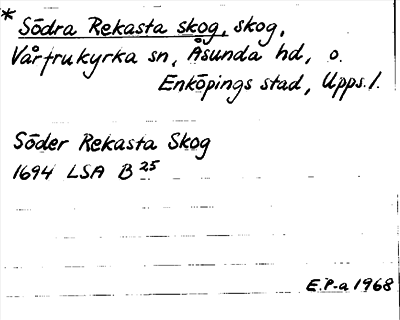 * Södra Rekasta skog, skog,
Vårfrukyrka sn, Åsunda hd, o.
Enköpings stad, Upps. l.
Söder Rekasta Skog
1694 LSA B 25
E.P-a 1968